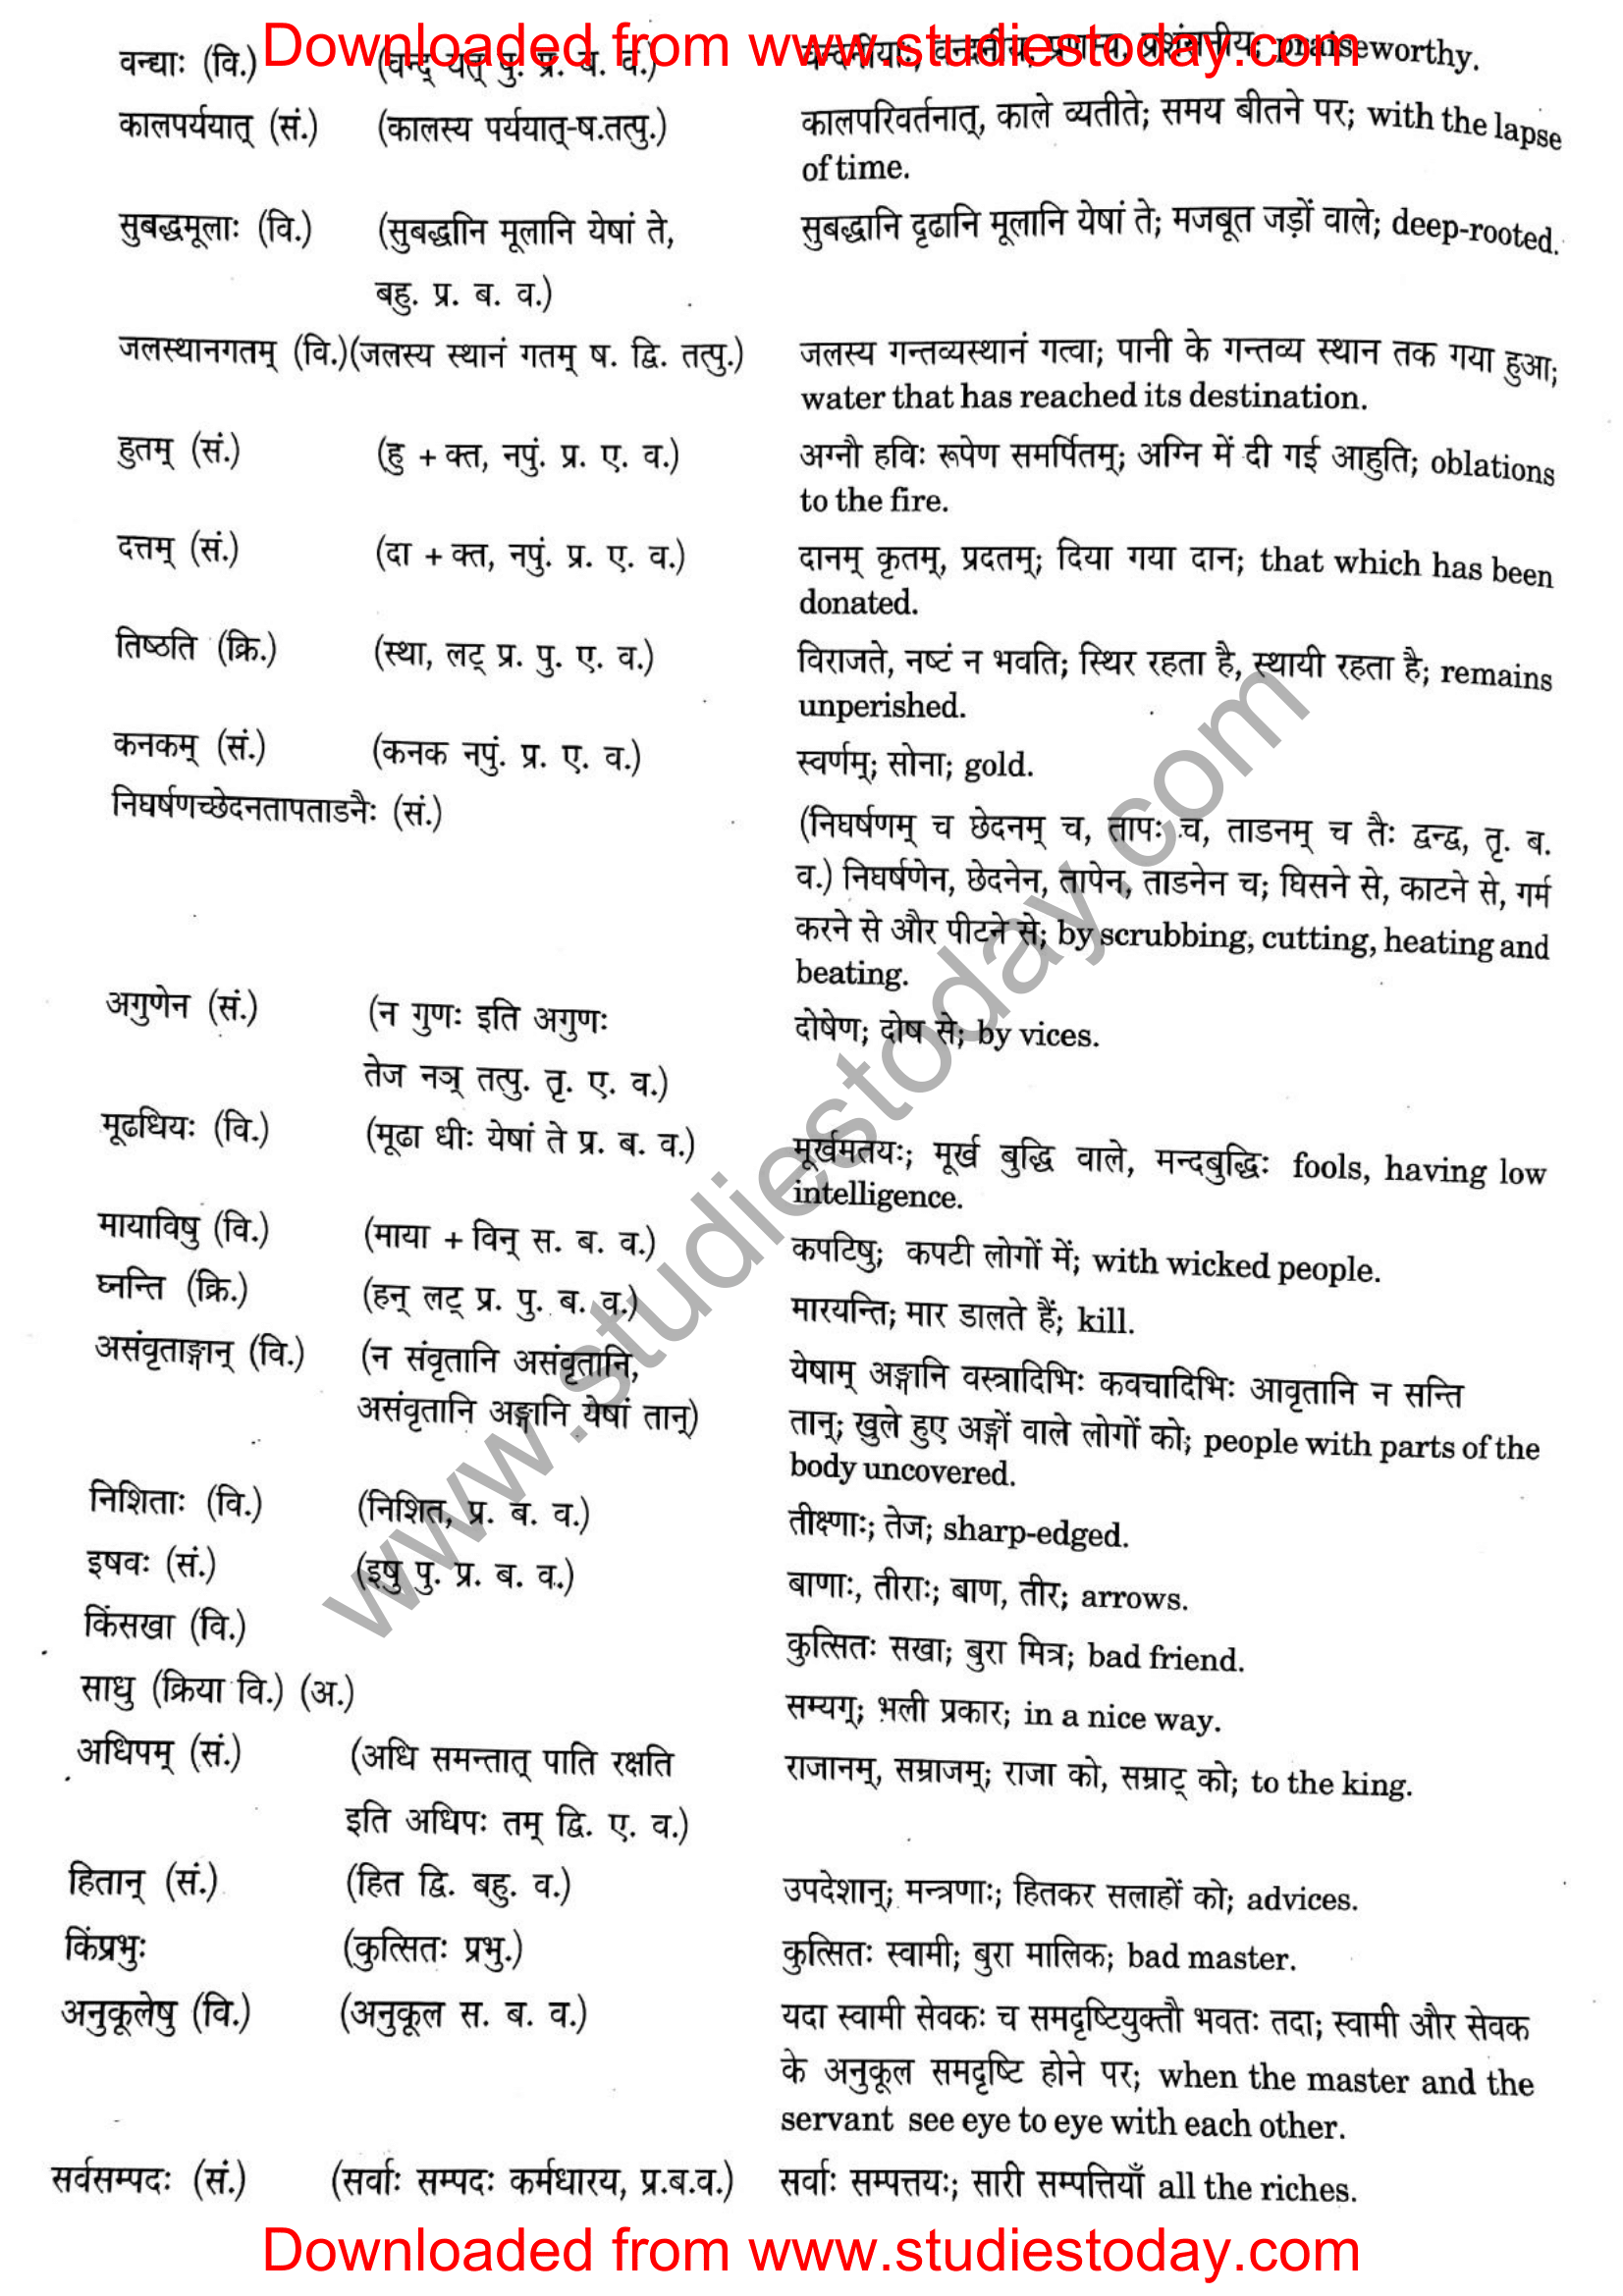 Downloaded from www.studiestoday.com
वन्द्याः (वि.) (वन्द् यत् पु. प्र. ब. व.) वन्दनीयाः, वन्दनीय, प्रणम्य, प्रशंसनीय; praiseworthy.
कालपर्ययात् (सं.) (कालस्य पर्ययात्-ष.तत्पु.) कालपरिवर्तनात्, काले व्यतीते; समय बीतने पर; with the lapse
of time.
सुबद्धमूलाः (वि.) (सुबद्धानि मूलानि येषां ते, सुबद्धानि दृढानि मूलानि येषां ते; मजबूत जड़ों वाले; deep-rooted.
बहु. प्र. ब. व.)
जलस्थानगतम् (वि.)(जलस्य स्थानं गतम् ष. द्वि. तत्पु.) जलस्य गन्तव्यस्थानं गत्वा; पानी के गन्तव्य स्थान तक गया हुआ;
water that has reached its destination.
हुतम् (सं.) (हु + क्त, नपुं. प्र. ए. व.) अग्नौ हविः रूपेण समर्पितम्; अग्नि में दी गई आहुति; oblations
to the fire.
दत्तम् (सं.) (दा + क्त, नपुं. प्र. ए. व.) दानम् कृतम्, प्रदतम्; दिया गया दान; that which has been
donated.
तिष्ठति (क्रि.) (स्था, लट् प्र. पु. ए. व.) विराजते, नष्टं न भवति; स्थिर रहता है, स्थायी रहता है; remains
unperished.
कनकम् (सं.) (कनक नपुं. प्र. ए. व.) स्वर्णम्; सोना; gold.
निघर्षणच्छेदनतापताडनैः (सं.) (निघर्षणम् च छेदनम् च, तापः च, ताडनम् च तैः द्वन्द्व, तृ. ब.
व.) निघर्षणेन, छेदनेन, तापेन, ताडनेन च; घिसने से, काटने से, गर्म
करने से और पीटने से; by scrubbing, cutting, heating and
beating.
अगुणेन (सं.) (न गुणः इति अगुणः दोषेण; दोष से; by vices.
तेज नञ् तत्पु. तृ. ए. व.)
मूढधियः (वि.) (मूढा धीः येषां ते प्र. ब. व.) मूर्खमतयः; मूर्ख बुद्धि वाले, मन्दबुद्धिः fools, having low
intelligence.
मायाविषु (वि.) (माया + विन् स. ब. व.) कपटिषु; कपटी लोगों में; with wicked people.
घ्नन्ति (क्रि.) (हन् लट् प्र. पु. ब. व.) मारयन्ति; मार डालते हैं; kill.
असंवृताङ्गान् (वि.) (न संवृतानि असंवृतानि, येषाम् अङ्गानि वस्त्रादिभिः कवचादिभिः आवृतानि न सन्ति
असंवृतानि अङ्गानि येषां तान्) तान्; खुले हुए अङ्गों वाले लोगों को; people with parts of the
body uncovered.
निशिताः (वि.) (निशित, प्र. ब. व.) तीक्ष्णाः; तेज; sharp-edged.
इषवः (सं.) (इषु पु. प्र. ब. व.) बाणाः, तीराः; बाण, तीर; arrows.
किंसखा (वि.) कुत्सितः सखा; बुरा मित्र; bad friend.
साधु (क्रिया वि.) (अ.) सम्यग्; भली प्रकार; in a nice way.
अधिपम् (सं.) (अधि समन्तात् पाति रक्षति राजानम्, सम्राजम्; राजा को, सम्राट् को; to the king.
इति अधिपः तम् द्वि. ए. व.)
हितान् (सं.) (हित द्वि. बहु. व.) उपदेशान्; मन्त्रणाः; हितकर सलाहों को; advices.
किंप्रभुः (कुत्सितः प्रभु.) कुत्सितः स्वामी; बुरा मालिक; bad master.
अनुकूलेषु (वि.) (अनुकूल स. ब. व.) यदा स्वामी सेवकः च समदृष्टियुक्तौ भवतः तदा; स्वामी और सेवक
के अनुकूल समदृष्टि होने पर; when the master and the
servant see eye to eye with each other.
सर्वसम्पदः (सं.) (सर्वाः सम्पदः कर्मधारय, प्र.ब.व.) सर्वाः सम्पत्तयः; सारी सम्पत्तियाँ all the riches.
www.studiestoday.com
Downloaded from www.studiestoday.com